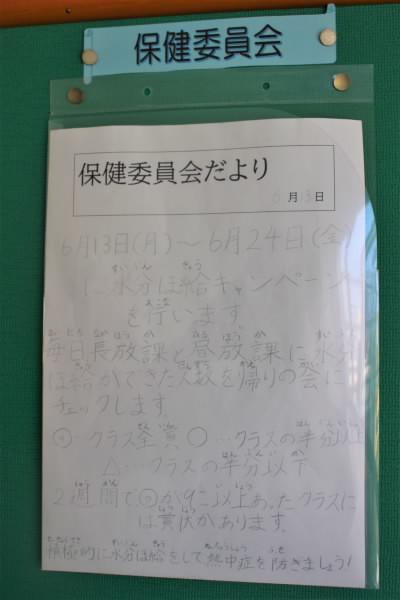 保健委員会
保健委員会だより
6月13日
6月13日(月)～6月24日(金)
に水分ほ給キャンペーン
を行います
毎日長放課と昼放課に水分
ほ給ができた人数を帰りの会に
チェックします。
◎…クラス全員 ○…クラスの半分以上
△…クラスの半分以下
2週間で◎が9こ以上あったクラスに
は賞状があります。
積極的に水分ほ給をして熱中症を防ぎましょう!